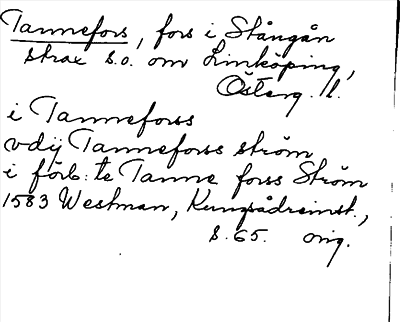 Tannefors, fors i Stångån
strax s.o. om Linköping,
Österg. l.
i Tanneforss
vdij Tanneforss ström
i förb: te Tanne forss Ström
1583 Westman, Kungsådreinst.,
s. 65. orig.